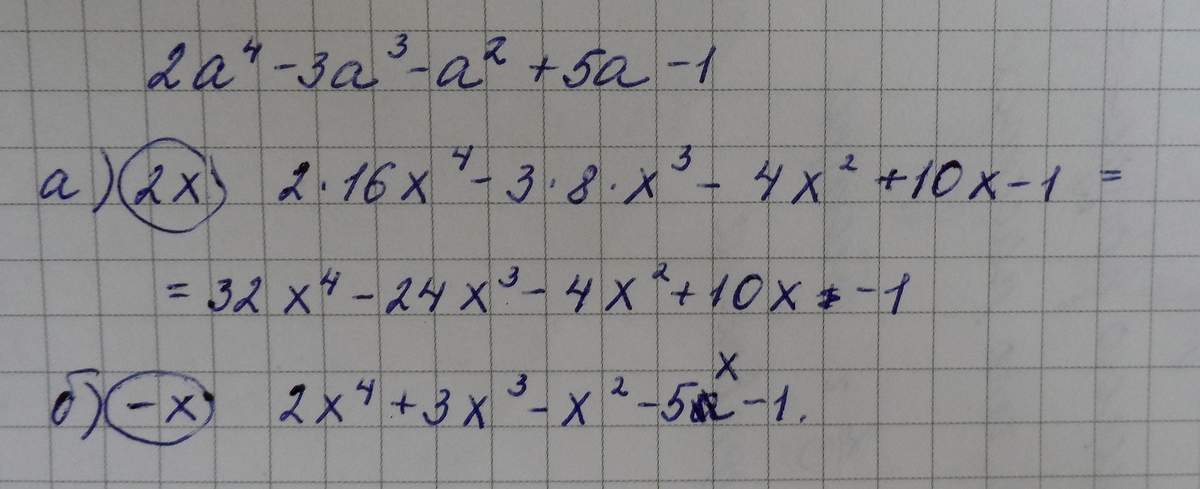 2a⁴ - 3a³ - a² + 5a - 1
а) 2x 2·16x⁴ - 3·8·x³ - 4x² + 10x - 1 =
= 32x⁴ - 24x³ - 4x² + 10x - 1
б) -x 2x⁴ + 3x³ - x² - 5x - 1.